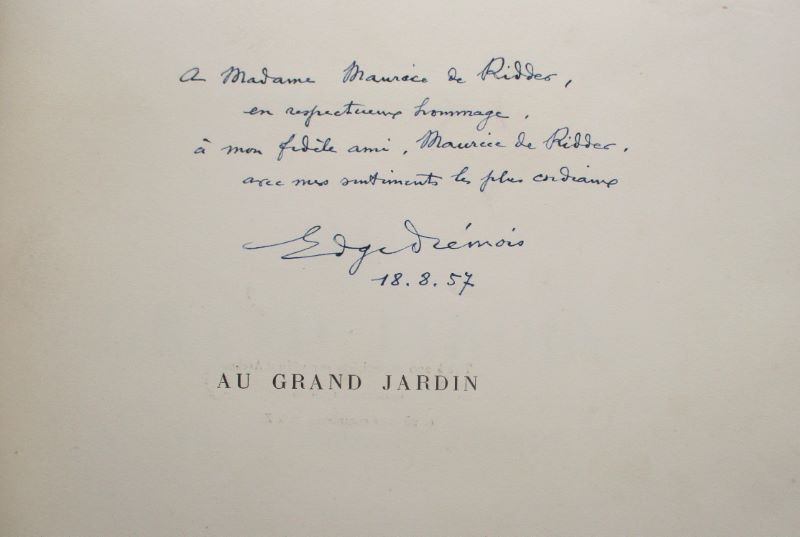 A Madame Maurice de Ridder,
en respectueux hommage,
à mon fidèle ami, Maurice de Ridder,
avec mes sentiments les plus cordiaux
18.8.57
AU GRAND JARDIN